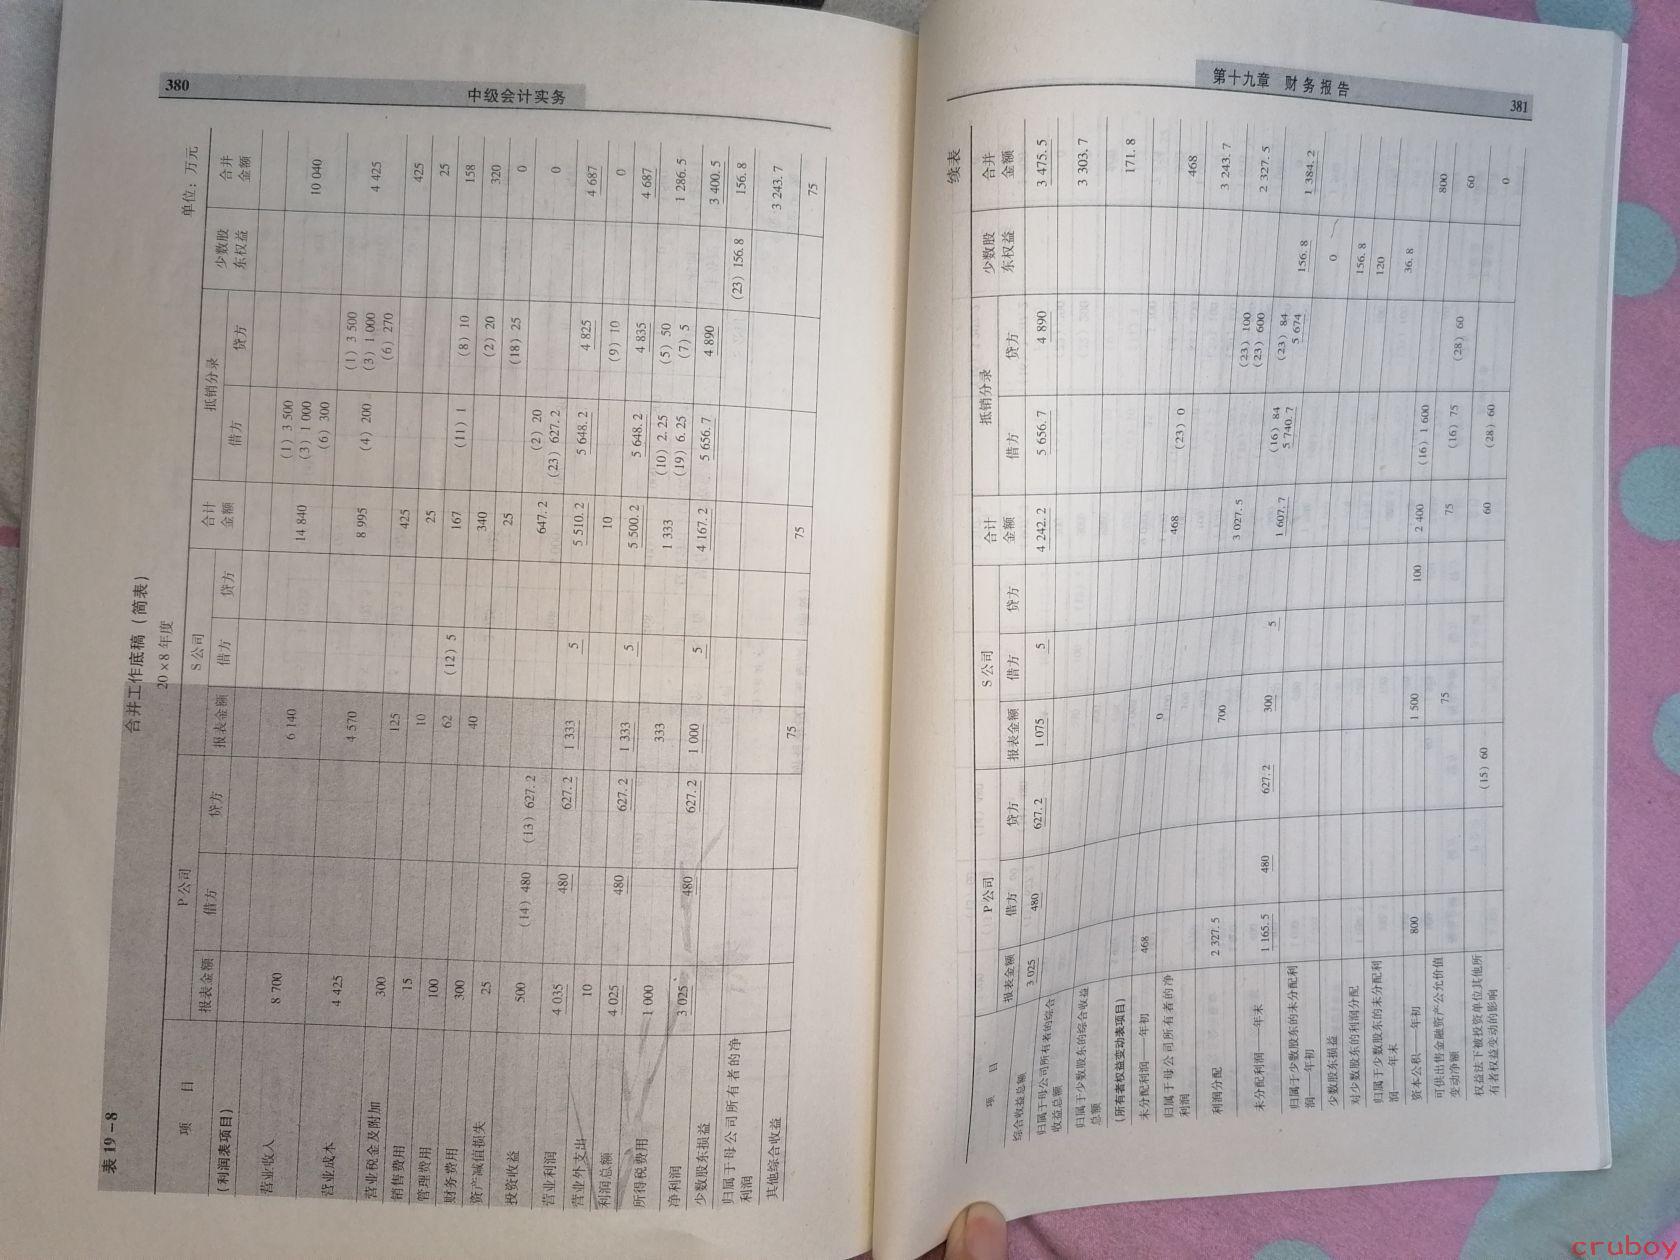 380
中级会计实务
表 19-8
合并工作底稿(简表)
20×8 年度
单位:万元
项 目 P 公司 S 公司 合计金额 抵销分录 少数股东权益 合并金额
报表金额 借方 贷方 报表金额 借方 贷方 借方 贷方
(利润表项目)
营业收入 8 700 6 140 14 840 (1) 3 500 (3) 1 000 (6) 300 10 040
营业成本 4 425 4 570 8 995 (4) 200 (1) 3 500 (3) 1 000 (6) 270 4 425
营业税金及附加 300 125 425 425
销售费用 15 10 25 25
管理费用 100 62 (12) 5 167 (11) 1 (8) 10 158
财务费用 300 40 340 (2) 20 320
资产减值损失 25 25 (18) 25 0
投资收益 500 (14) 480 (13) 627.2 647.2 (2) 20 (23) 627.2 0
营业利润 4 035 480 627.2 1 333 5 5 510.2 5 648.2 4 825 4 687
营业外支出 10 10 (9) 10 0
利润总额 4 025 480 627.2 1 333 5 5 500.2 5 648.2 4 835 4 687
所得税费用 1 000 333 1 333 (10) 2.25 (19) 6.25 (5) 50 (7) 5 1 286.5
净利润 3 025 480 627.2 1 000 5 4 167.2 5 656.7 4 890 3 400.5
少数股东损益 (23) 156.8 156.8
归属于母公司所有者的净利润 3 243.7
其他综合收益 75 75 75
第十九章 财务报告
381
续表
项 目 P 公司 S 公司 合计金额 抵销分录 少数股东权益 合并金额
报表金额 借方 贷方 报表金额 借方 贷方 借方 贷方
综合收益总额 3 025 480 627.2 1 075 5 4 242.2 5 656.7 4 890 3 475.5
归属于母公司所有者的综合收益总额 3 303.7
归属于少数股东的综合收益总额 171.8
(所有者权益变动表项目)
未分配利润——年初 468 0 468 (23) 0 468
归属于母公司所有者的净利润 3 243.7
利润分配 2 327.5 700 3 027.5 (23) 100 (23) 600 2 327.5
未分配利润——年末 1 165.5 480 627.2 300 5 1 607.7 (16) 84 5 740.7 (23) 84 5 674 1 384.2
归属于少数股东的未分配利润——年初 0
少数股东损益 156.8 156.8
对少数股东的利润分配 120
归属于少数股东的未分配利润——年末 36.8
资本公积——年初 800 1 500 100 2 400 (16) 1 600 800
可供出售金融资产公允价值变动净额 75 75 (16) 75 (28) 60 60
权益法下被投资单位其他所有者权益变动的影响 (15) 60 60 (28) 60 0
cruboy